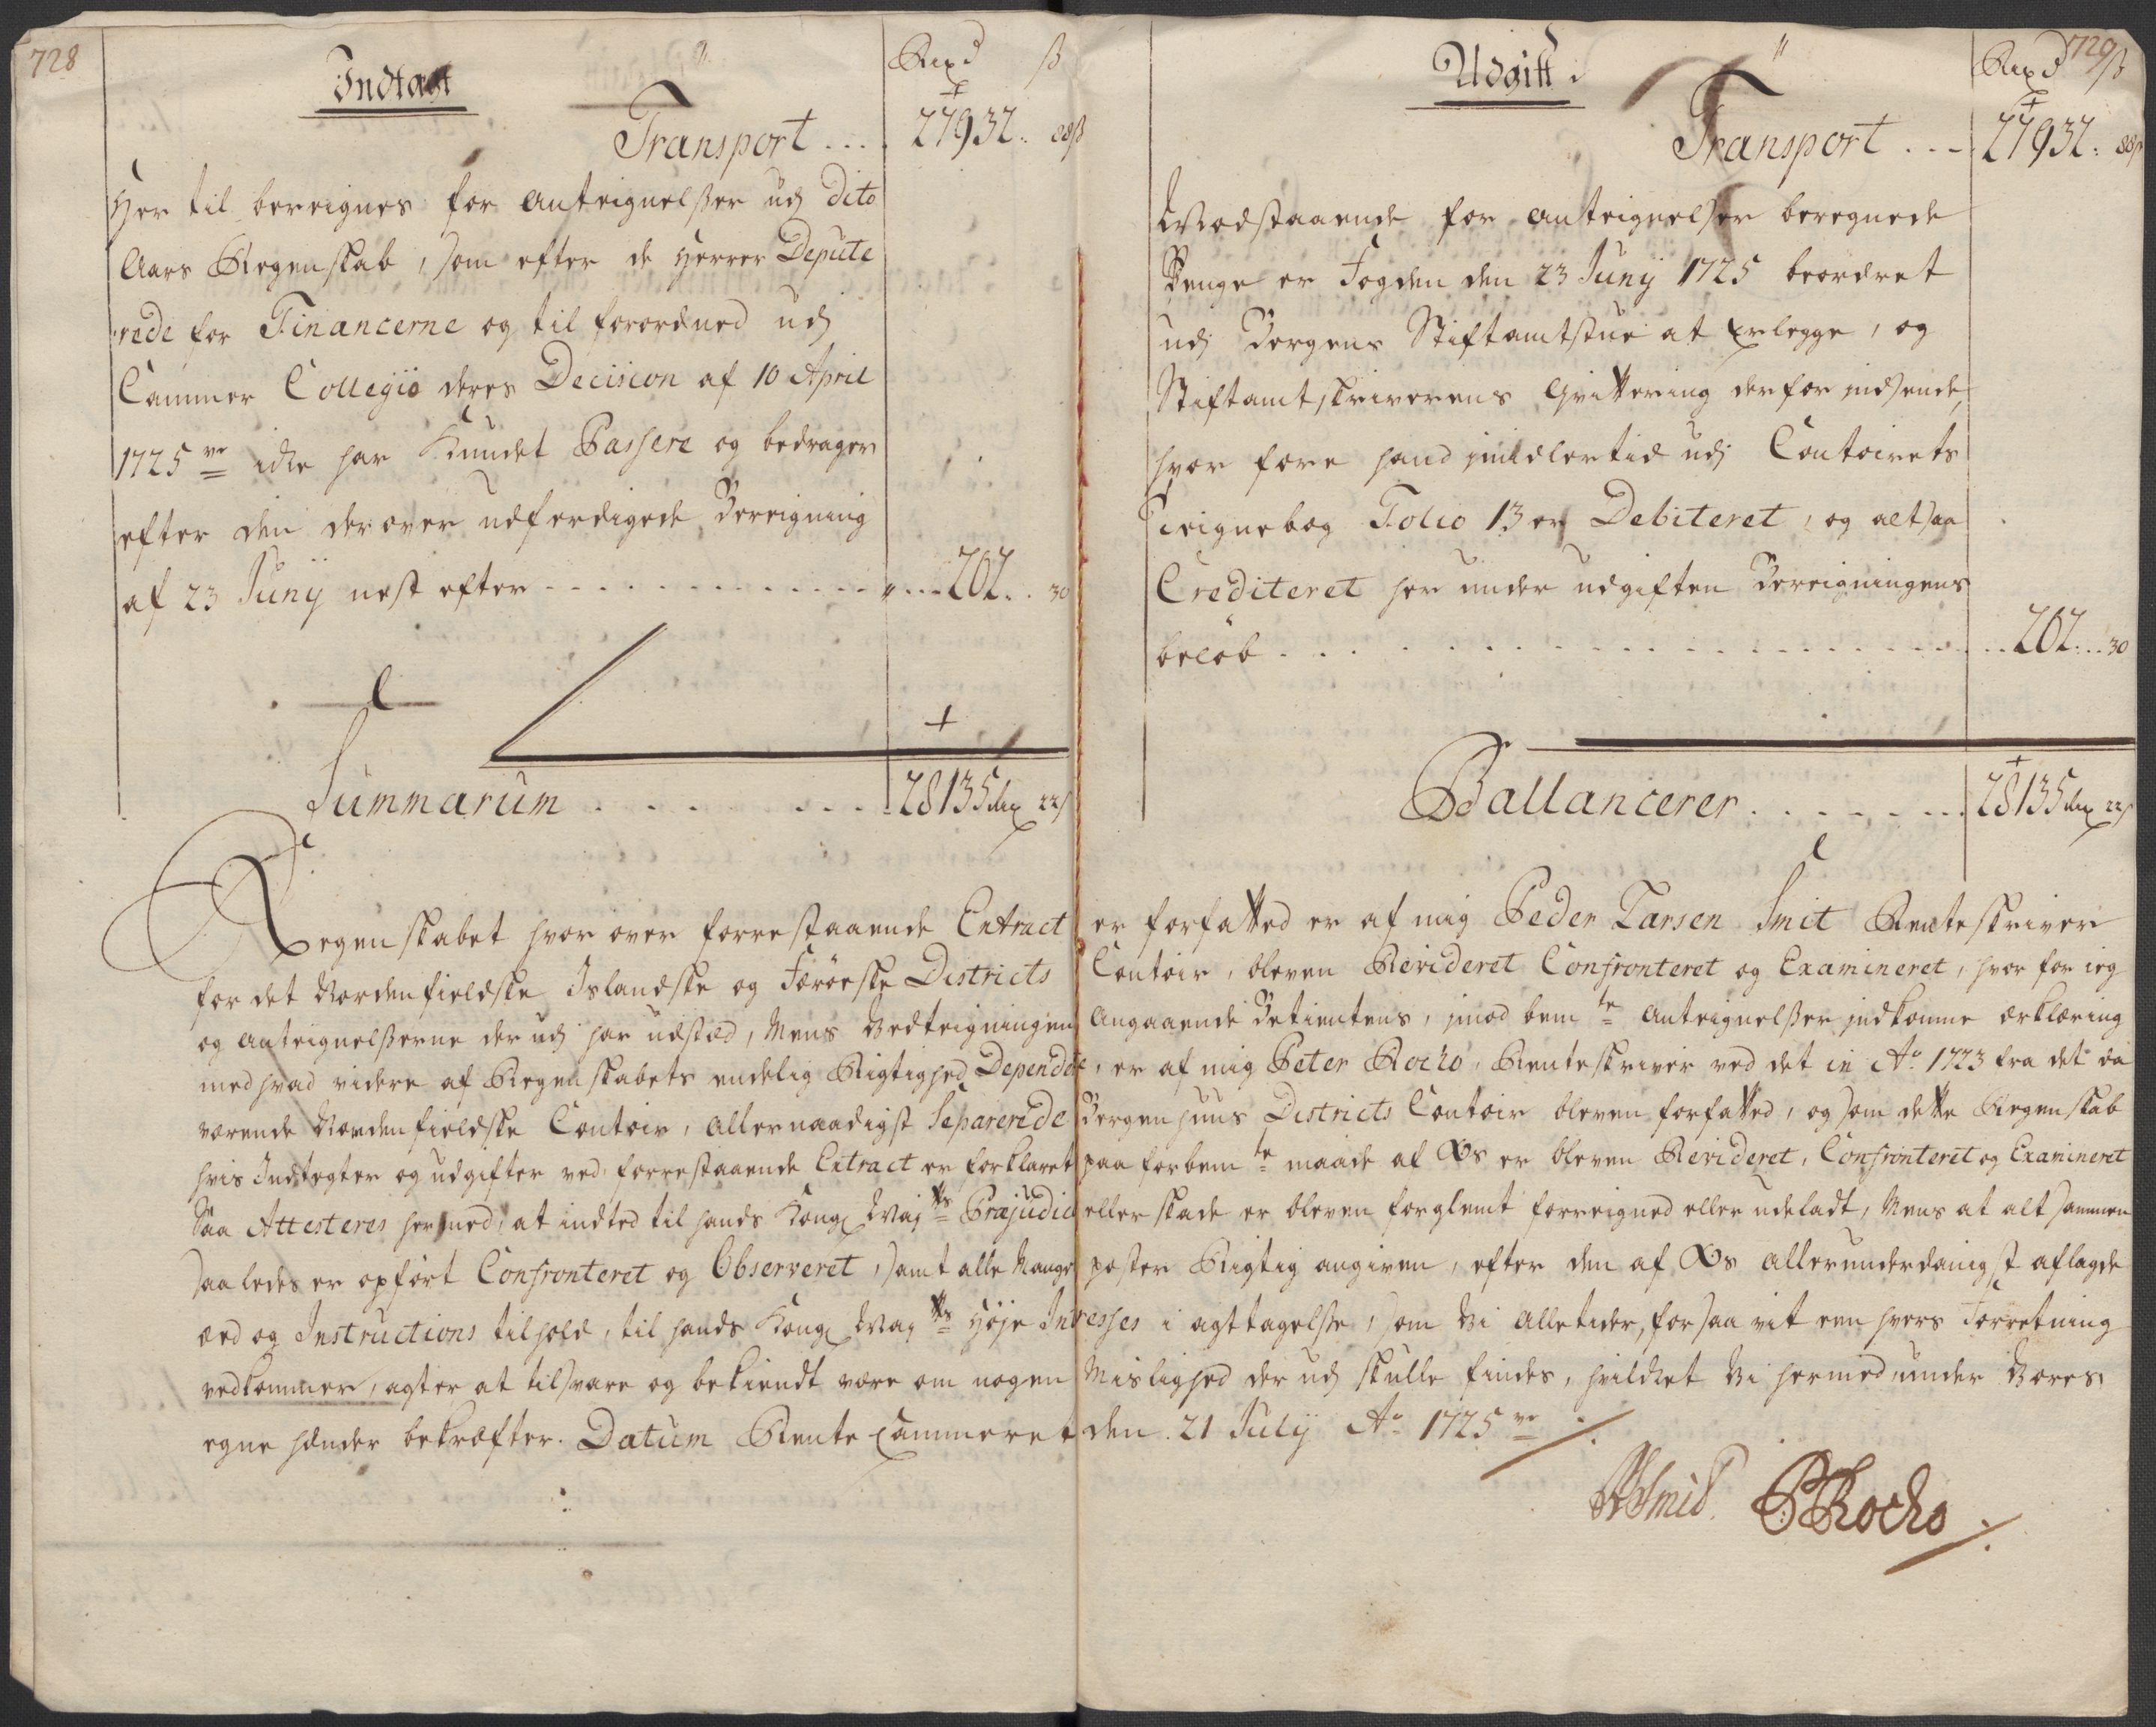 728
Indtægt
Rixd ß
Transport . . . 27932: 88ß
Her til bereignes for Anteignelßer udj dito
Aars Regenskab, som efter de Herrer Depute
rede for Financerne og til forordned udj
Cammer Collegio deres Decision af 10 April
1725 ve icke har Kundet Passere og bedrager
efter den der over udferdigede Bereigning
af 23 Junij nest efter - - - - 202 . . 30
Summarum . . . . 28135 dlr 22ß
729
Udgift
Rixd ß
Transport . . . 27932: 88ß
Modstaaende for anteignelser beregnede
Penge er Fogden den 23 Junij 1725 beordret
udj Bergens Stiftamtstue at Erlegge, og
Stiftamtskriverens Qvittering derfor indsende,
hvor fore hand imidlertid udj Contoirets
Teignebog Folio 13 er Debiteret, og altsaa
Crediteret her under udgiften Bereigningens
beløb . . . . 202 . . . 30
Ballancerer . . . . 28135 dlr 22ß
Regenskabet hvor over forrestaaende Extract er forfatted er af mig Peder Larsen Smit Renteskriver
for det Nordenfieldske Islandske og Færøeske Districts Contoir, bleven Revideret Confronteret og Examineret, hvor for ieg
og anteignelßerne der udj har udsted, Mens Vedteigningen Angaaende Betientens, imod bem te Anteignelßer indkomne erklæring
med hvad videre af Regenskabets endelig Rigtighed Dependere, er af mig Peter Rocho, Renteskriver ved det in Ao 1723 fra det da
værende Nordenfieldske Contoir, allernaadigst Separerede Bergenhuus Districts Contoir bleven forfatted, og som dette Regenskab
hvis Indtegter og udgifter ved forrestaaende Extract er forklaret paa forbem te maade af Os er bleven Revideret, Confronteret og Examineret
Saa Attesteres hermed, at indted til hands Kong Maj tts Præjudice eller skade er bleven forglemt forreigned eller udeladt, Mens at alt sammen
saaledes er opført Confronteret og Observeret, samt alle Mange poster Rigtig angiven, efter den af Os allerunderdanigst aflagde
æd og Instructions tilhold, til hands Kong Maj tts Høje Intresses i agttagelse, som Vi alletider, forsaa vit een hvers Forretning
vedkommer, agter at tilsvare og bekiendt være om nogen Mislighed der udj skulle findes, hvilchet Vi hermed under Vores
egne hænder bekræfter. Datum Rente Cammeret den 21 Julij Ao 1725 ve
Smid. PRocho